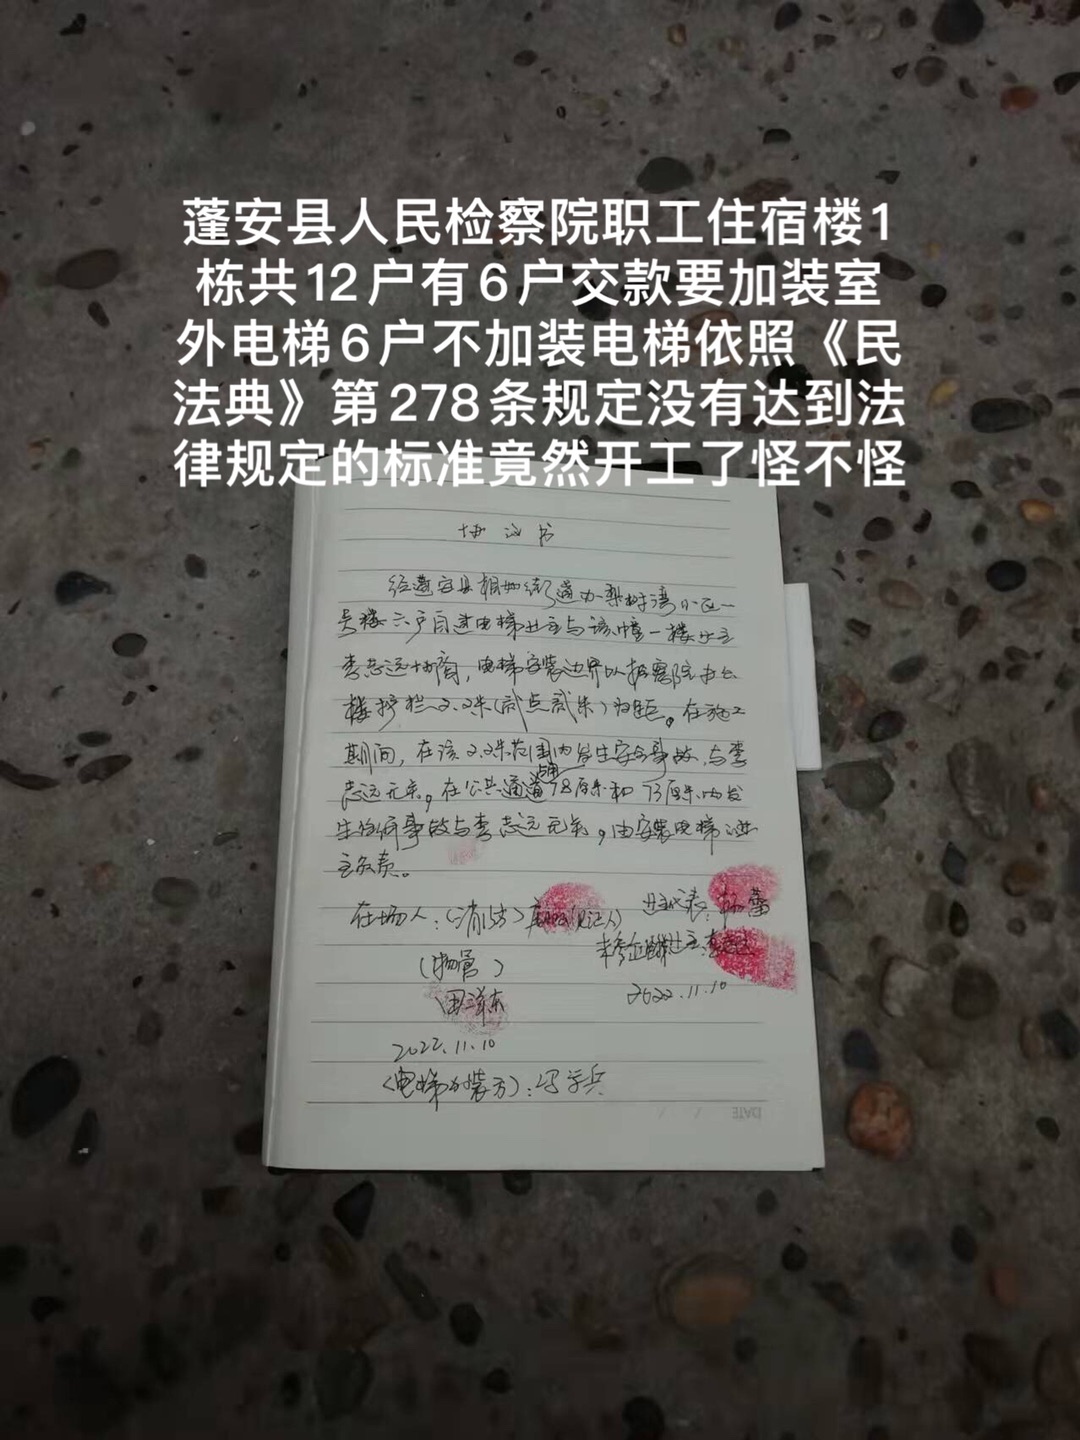 蓬安县人民检察院职工住宿楼1
栋共12户有6户交款要加装室
外电梯6户不加装电梯依照《民
法典》第278条规定没有达到法
律规定的标准竟然开工了怪不怪
协议书
经蓬安县相如街道办梨树湾小区一
号楼六户自建电梯业主与该幢一楼业主
李志远协商,电梯安装边界以检察院办公
楼护栏2.2米(贰点贰米)为距。在施工
期间,在该2.2米范围内发生安全事故,与李
志远无关,在公共通道占用78厘米和73厘米内发
生任何事故与李志远无关,由安装电梯业
主负责。
在场人:(见证人) 业主代表:
业主:李志远
(物管) 2022.11.10
2022.11.10
(电梯安装方):
DATE